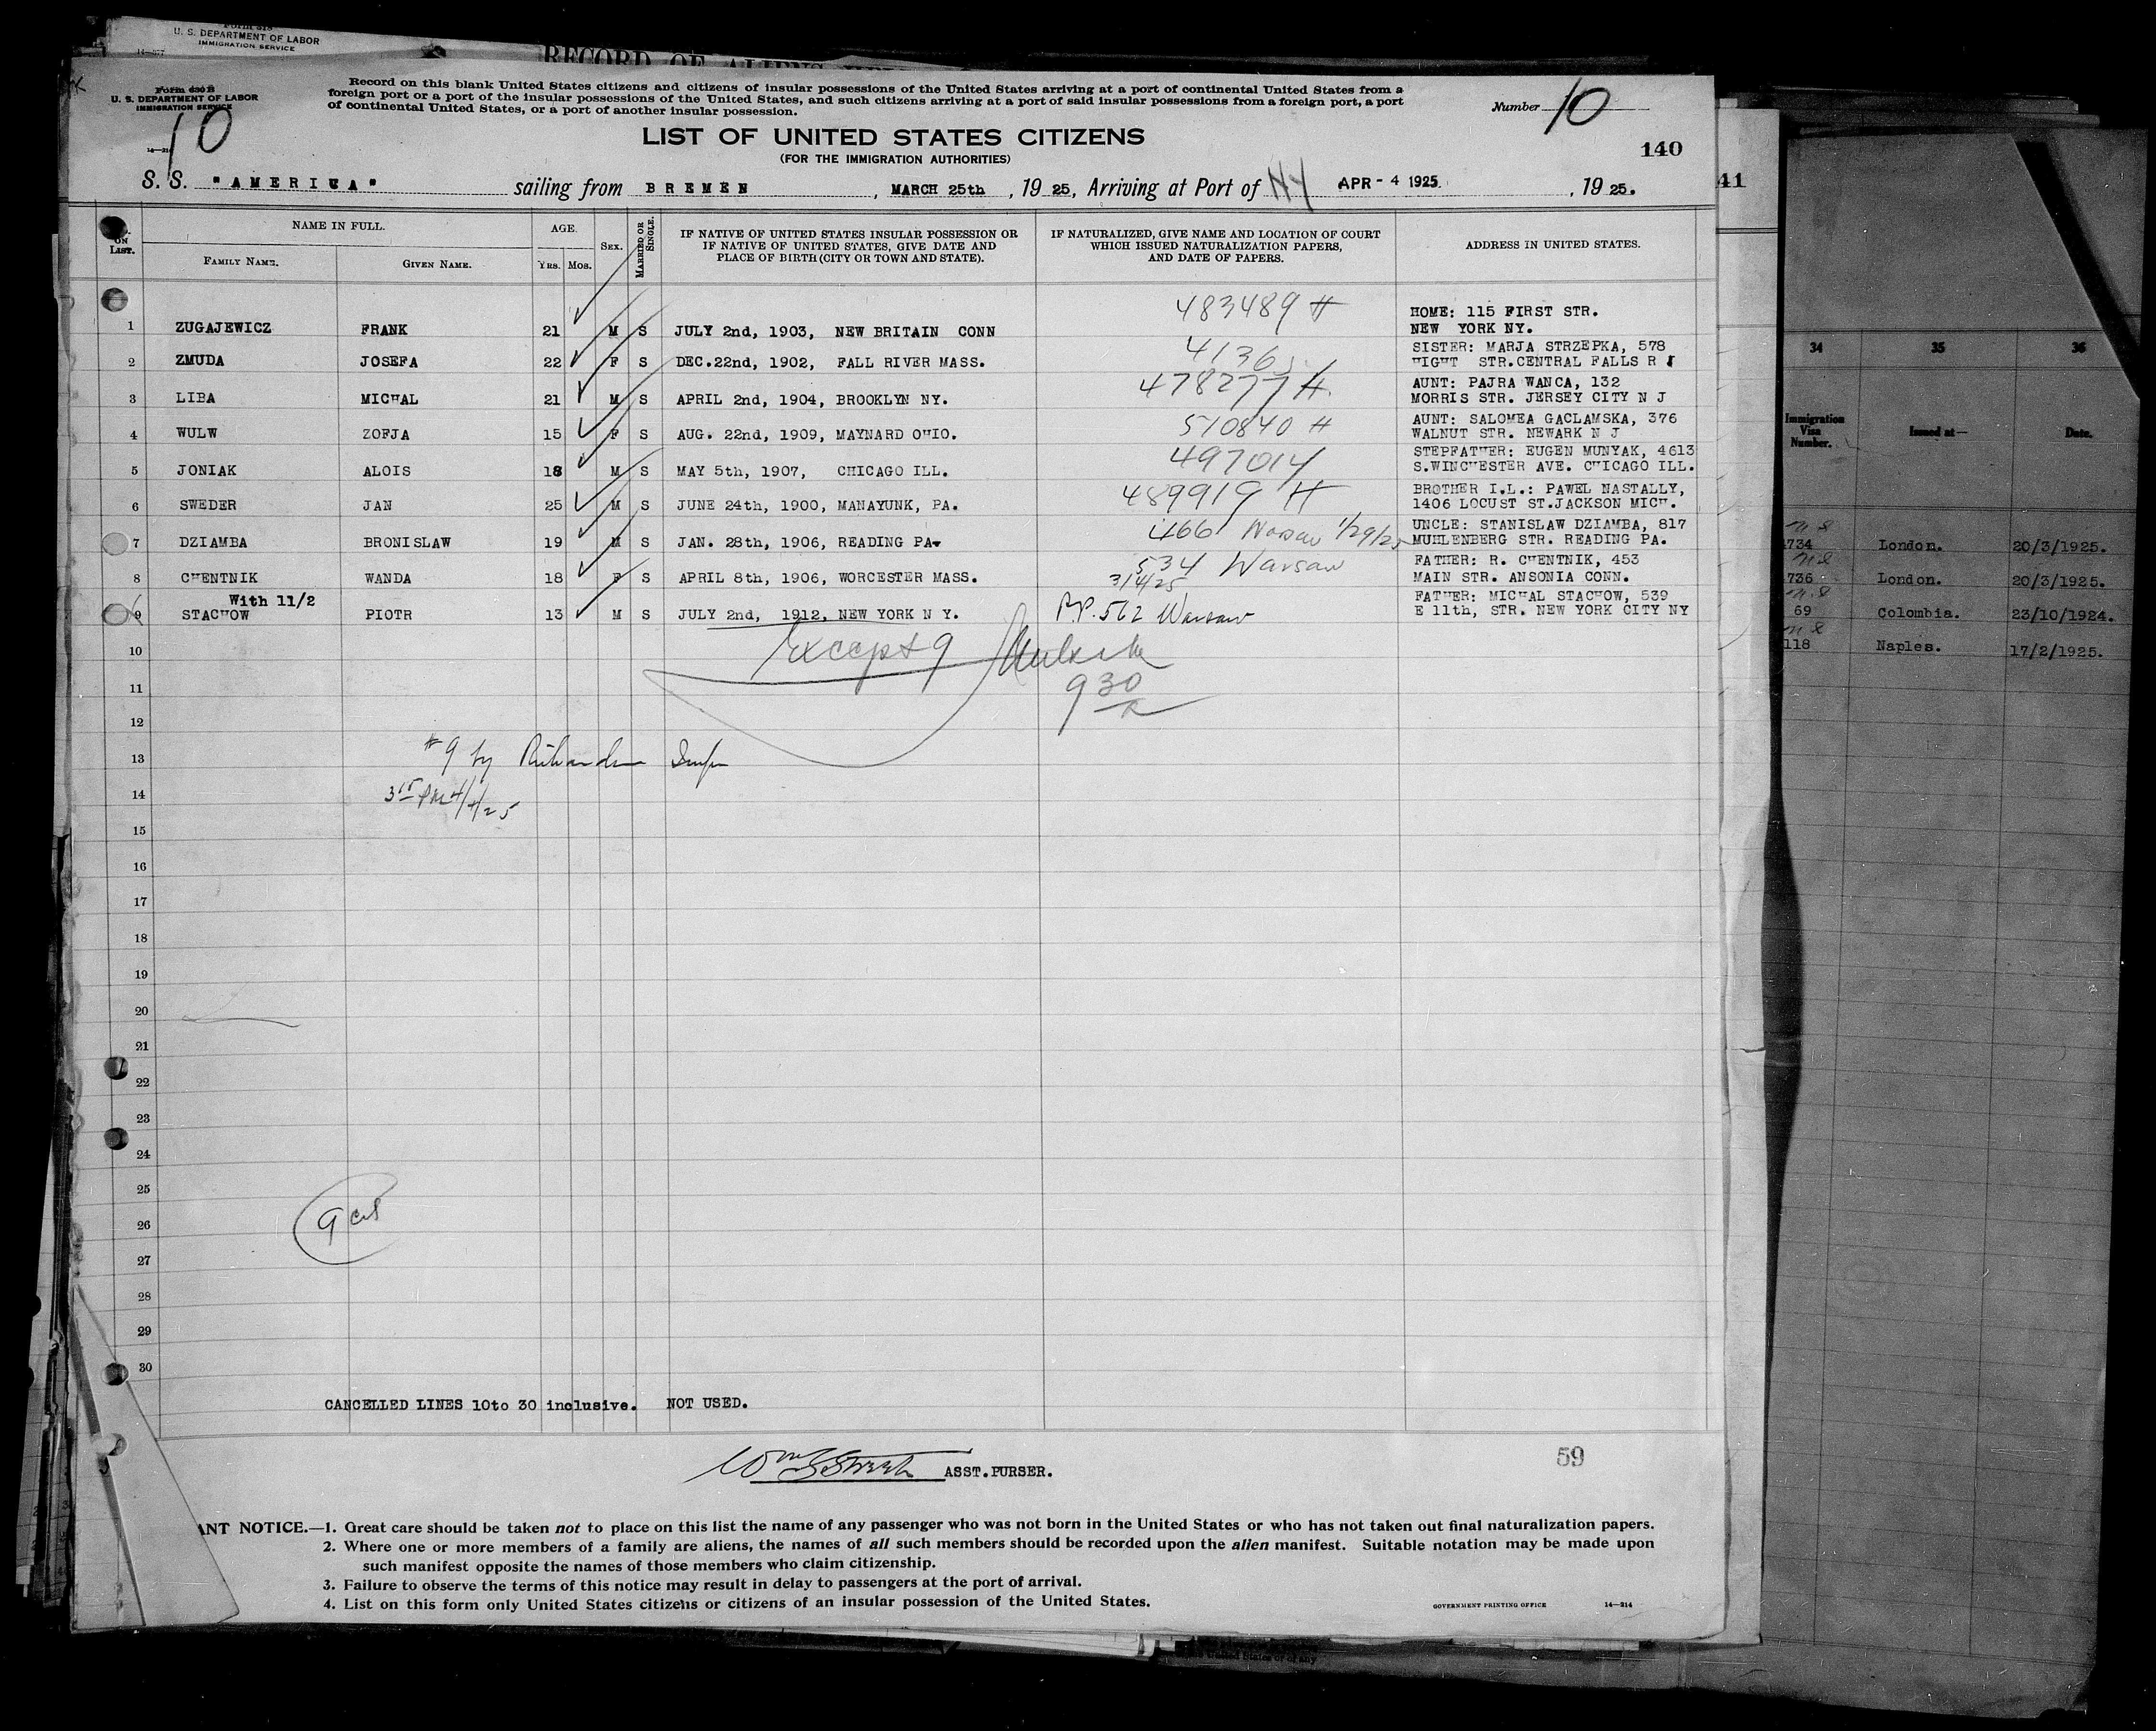 U. S. DEPARTMENT OF LABOR
IMMIGRATION SERVICE
RECORD OF ALIENS
Form 630 B
U. S. DEPARTMENT OF LABOR
IMMIGRATION SERVICE
Record on this blank United States citizens and citizens of insular possessions of the United States arriving at a port of continental United States from a
foreign port or a port of the insular possessions of the United States, and such citizens arriving at a port of said insular possessions from a foreign port, a port
of continental United States, or a port of another insular possession.
Number 10
10
14—214
LIST OF UNITED STATES CITIZENS
(FOR THE IMMIGRATION AUTHORITIES)
140
S. S. "AMERICA" sailing from BREMEN, MARCH 25th, 1925, Arriving at Port of NY APR - 4 1925., 1925.
41
No. ON LIST. NAME IN FULL. AGE. SEX. MARRIED OR SINGLE. IF NATIVE OF UNITED STATES INSULAR POSSESSION OR IF NATIVE OF UNITED STATES, GIVE DATE AND PLACE OF BIRTH (CITY OR TOWN AND STATE). IF NATURALIZED, GIVE NAME AND LOCATION OF COURT WHICH ISSUED NATURALIZATION PAPERS, AND DATE OF PAPERS. ADDRESS IN UNITED STATES.
FAMILY NAME. GIVEN NAME. YRS. MOS.
483489 H HOME: 115 FIRST STR.
1 ZUGAJEWICZ FRANK 21 M S JULY 2nd, 1903, NEW BRITAIN CONN NEW YORK NY.
SISTER: MARJA STRZEPKA, 578
2 ZMUDA JOSEFA 22 F S DEC.22nd, 1902, FALL RIVER MASS. HIGHT STR.CENTRAL FALLS R I
478277 H AUNT: PAJRA WANCA, 132
3 LIBA MICHAL 21 M S APRIL 2nd, 1904, BROOKLYN NY. MORRIS STR. JERSEY CITY N J
510840 H AUNT: SALOMEA GACLAMSKA, 376
4 WULW ZOFJA 15 F S AUG. 22nd, 1909, MAYNARD OHIO. WALNUT STR. NEWARK N J
497014 STEPFATHER: EUGEN MUNYAK, 4613
5 JONIAK ALOIS 18 M S MAY 5th, 1907, CHICAGO ILL. S.WINCHESTER AVE. CHICAGO ILL.
489919 H BROTHER I.L.: PAWEL NASTALLY,
6 SWEDER JAN 25 M S JUNE 24th, 1900, MANAYUNK, PA. 1406 LOCUST ST.JACKSON MICH.
466 Warsaw 1/29/25 UNCLE: STANISLAW DZIAMBA, 817
7 DZIAMBA BRONISLAW 19 M S JAN. 28th, 1906, READING PA. MUHLENBERG STR. READING PA.
534 Warsaw FATHER: R. CHENTNIK, 453
8 CHENTNIK WANDA 18 F S APRIL 8th, 1906, WORCESTER MASS. 3/4/25 MAIN STR. ANSONIA CONN.
With 11/2 FATHER: MICHAL STACHOW, 539
9 STACHOW PIOTR 13 M S JULY 2nd, 1912, NEW YORK N Y. P.P. 562 Warsaw E 11th, STR. NEW YORK CITY NY
10 Except 9
11 9 30
12
13 #9 by Insp
14 3 15 PM 4/4/25
15
16
17
18
19
20
21
22
23
24
25
26 9
27
28
29
30
CANCELLED LINES 10to 30 inclusive. NOT USED.
ASST.PURSER.
59
ANT NOTICE.—1. Great care should be taken not to place on this list the name of any passenger who was not born in the United States or who has not taken out final naturalization papers.
2. Where one or more members of a family are aliens, the names of all such members should be recorded upon the alien manifest. Suitable notation may be made upon
such manifest opposite the names of those members who claim citizenship.
3. Failure to observe the terms of this notice may result in delay to passengers at the port of arrival.
4. List on this form only United States citizens or citizens of an insular possession of the United States.
GOVERNMENT PRINTING OFFICE 14—214
34 35 36
Immigration Visa Number. Issued at— Date.
734 London. 20/3/1925.
736 London. 20/3/1925.
69 Colombia. 23/10/1924.
118 Naples. 17/2/1925.